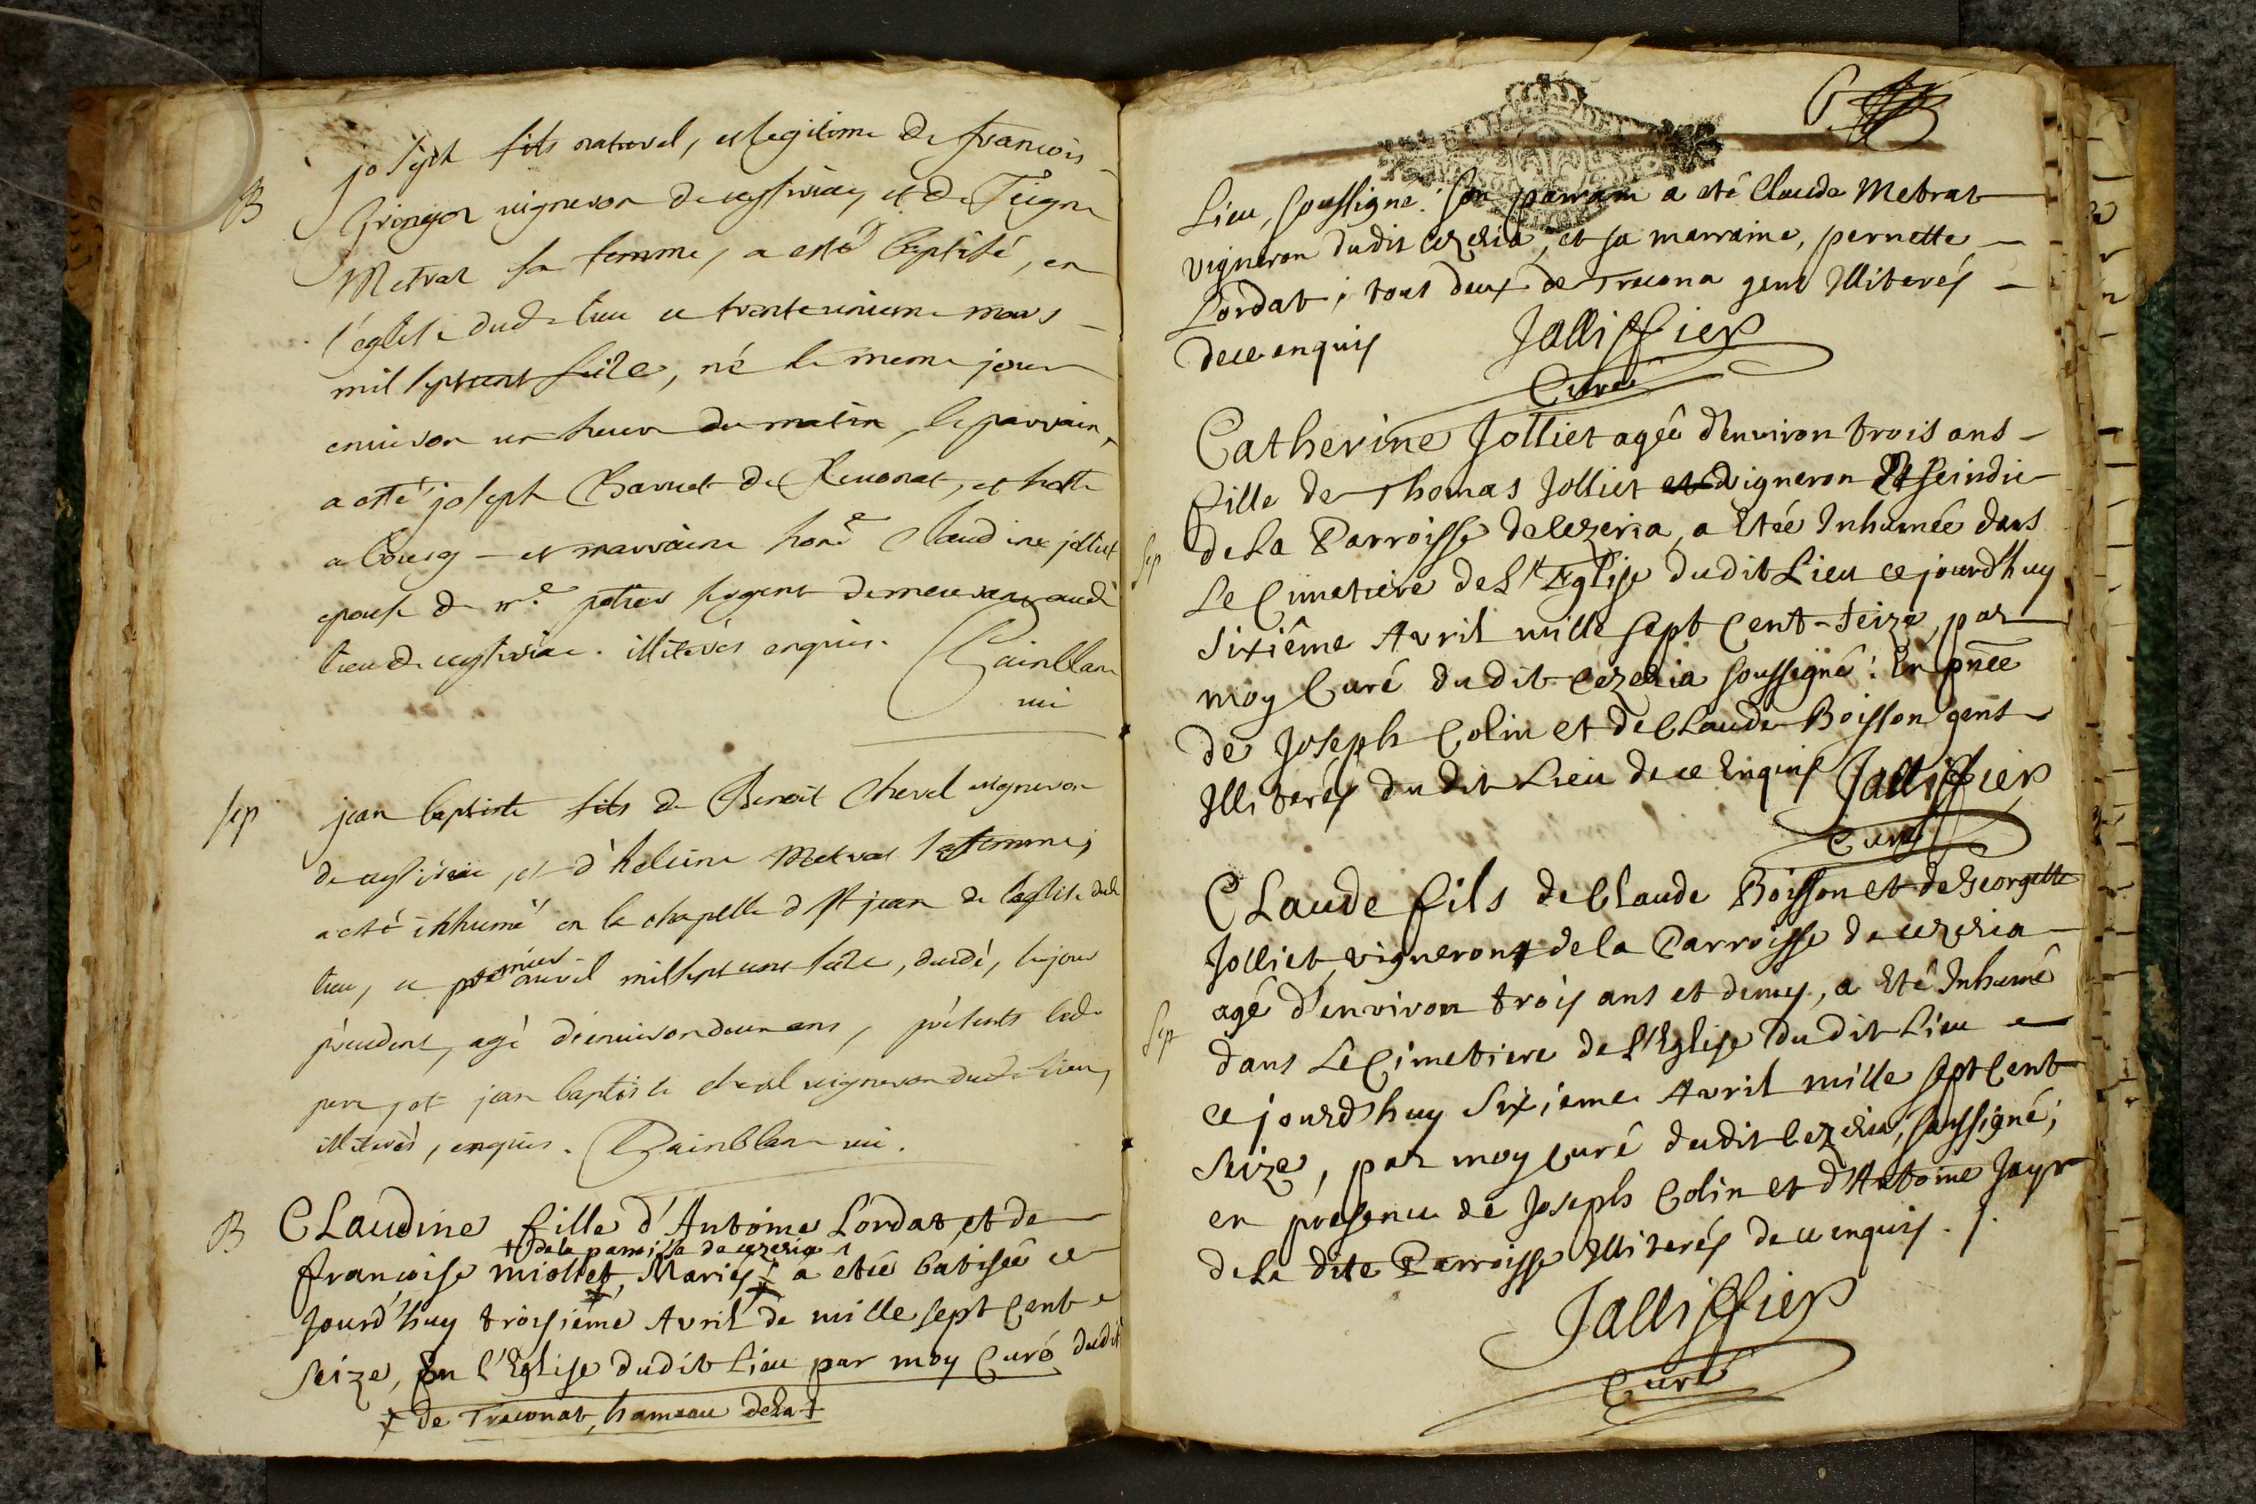 joseph fils naturel, et legitime de francois
B
vigneron de et de
Metral sa femme, a esté baptisé, en
l'eglise dud. lieu ce trente unieme mars
mil sept cent seize, né le meme jour
environ un heure du matin, le parrain,
a esté joseph de et
a bourg - et marraine hon.e Claudine jolliet
epouse de m.e
lieu de illiterés enquis.
sep
jean baptiste fils de Benoit Chevel vigneron
de et d'heleine Metral sa femme,
a esté inhumé en la chapelle d St jean de l'eglise dud.
lieu, ce premier avril mil sept cent seize, decedé, le jour
precedent, agé d'environ deux ans, présents led.
pere, et jean baptiste chevel vigneron dud. lieu,
illiterés, enquis.
B
CLaudine fille d'Antoine Lordat, et de
+ de la parroisse de cezeria +
francoise miolliet, Mariés + a etée batisée ce
Jourd'huy troisième Avril de mille sept Cent
Seize, En l'Eglise dudit Lieu par moy Curé dudit
+ de Traconat, hameau dela +
6
Lieu, soussigné. Son parrain a eté Claude Metrat
vigneron dudit cezeria, et sa marraine, pernette
Lordat; tous deux de Tracona gens Illiterés
dece enquis
Jalliffier
Curé
Catherine Jolliet agée d'environ trois ans
fille de Thomas Jolliet et vigneron Et seindic
sep
de La Parroisse de Cezeria, a Etée Inhumée dans
Le Cimetiere de L'Eglise dudit Lieu ce jourd'huy
Sixième Avril mille sept Cent-Seize, par
moy Curé dudit Cezeria soussigné: En pnce
de Joseph Colin et de CLaude Boisson gens
Illiterés dudit Lieu de ce Enquis Jalliffier
Curé
CLaude fils de Claude Boisson et de Georgette
Jolliet, vigneron de la Parroisse de cezeria
agé d'environ trois ans et demy, a Eté Inhumé
sep
dans Le Cimetiere de L'Eglise dudit Lieu
ce jourd'huy Sixième Avril mille sept Cent
Seize, par moy Curé dudit Cezeria, soussigné;
en présence de Joseph Colin et d'Antoine Jayr
de La dite Parroisse Illiterés de ce enquis.
Jalliffier
Curé